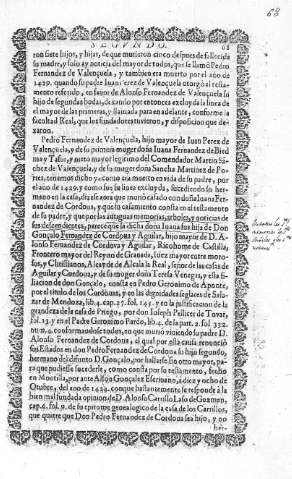 68
SEGVNDO. 68
ron siete hijos, y hijas, de que murieron cinco despues de fallecida
su madre, y solo ay noticia del mayor de todos, que se llamò Pedro
Fernandez de Valençuela, y tambien era muerto por el año de
1439. quando su padre Iuan Perez de Valençuela otorgò el testa-
mento referido, en fauor de Alonso Fernandez de Valençuela su
hijo de segundas bodas, dexando por entonces excluyda la linea de
el mayor de las primeras, y llamada para en adelante, conforme la
facultad Real, que los fundadores tuvieron, y disposicion que de
xaron.
Pedro Fernandez de Valençuela, hijo mayor de Iuan Perez de
Valençuela, y de su primera muger doña Iuana Fernandez de Bied
ma y Tafur, y nieto mayor legitimo del Comendador Martin Sã
chez de Valençuela, y de su muger doña Sancha Martinez de Por-
res, tenemos dicho, y como era muerto en vida de su padre, por
el año de 1439. y como fue su linea excluyda, sucediendo su her-
mano en la casa, dirèse aora que matrimonio con doña Iuana Fer-
nandez de Cordoua, y que su casamiento consta en el testamento
de su padre, y que por las antiguas memorias, arboles, y noticias de
sus descendientes, parece que la dicha doña Iuana fue hija de Don
Gonçalo Fernandez de Cordoua y Aguilar, hijo mayor de D. A-
lonso Fernandez de Cordova y Aguilar, Ricohome de Castilla,
Frontero mayor del Reyno de Granada, juez mayor entre moros
y Christianos, Alcayde de Alcala la Real, señor de las casas de
Aguilar y Cordoua, y de su muger doña Teresa Venegas, y esta fi-
liacion de don Gonçalo, consta en Pedro Geronimo de Aponte,
por el titulo de los Cordouas, y en las dignidades seglares de Sala-
zar de Mendoza, lib. 4. cap. 5. fol. 145. y en la justificacion de la
grandeza de la casa de Priego, por don Ioseph Pellicer de Tovar,
fol. 13. y en el Padre Geronimo Pardo, lib. 4. de la part. 2. fol. 352.
num. 4. conformandose todos, en que murio viviendo su padre D.
Alonso Fernandez de Cordoua, el qual por esta causa renunciò
sus Estados en don Pedro Fernandez de Cordoua su hijo segundo,
hermano del difunto D. Gonçalo, por hallarse sin otro mayor, pa-
ra que pudiesse suceder le, como consta por su testamento, fecho
en Montilla, por ante Alfon Gonçalez Escrivano, diez y ocho de
Otubre, del año de 1439. con que bastantemente se responde à la
bien mal fundada opinion de D. Alonso Carrillo Laso de Guzman,
cap. 6. fol. 9. de su epitome genealogico de la casa de los Carrillos,
que quiere que Don Pedro Fernandez de Cordoua sea hijo, y no
her-